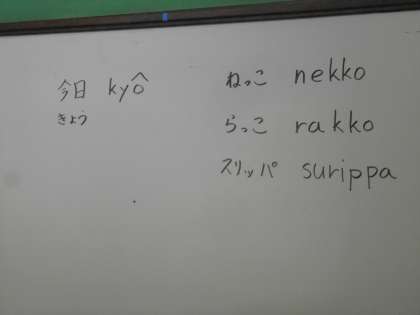 今日 kyô
きょう
ねっこ nekko
らっこ rakko
スリッパ surippa